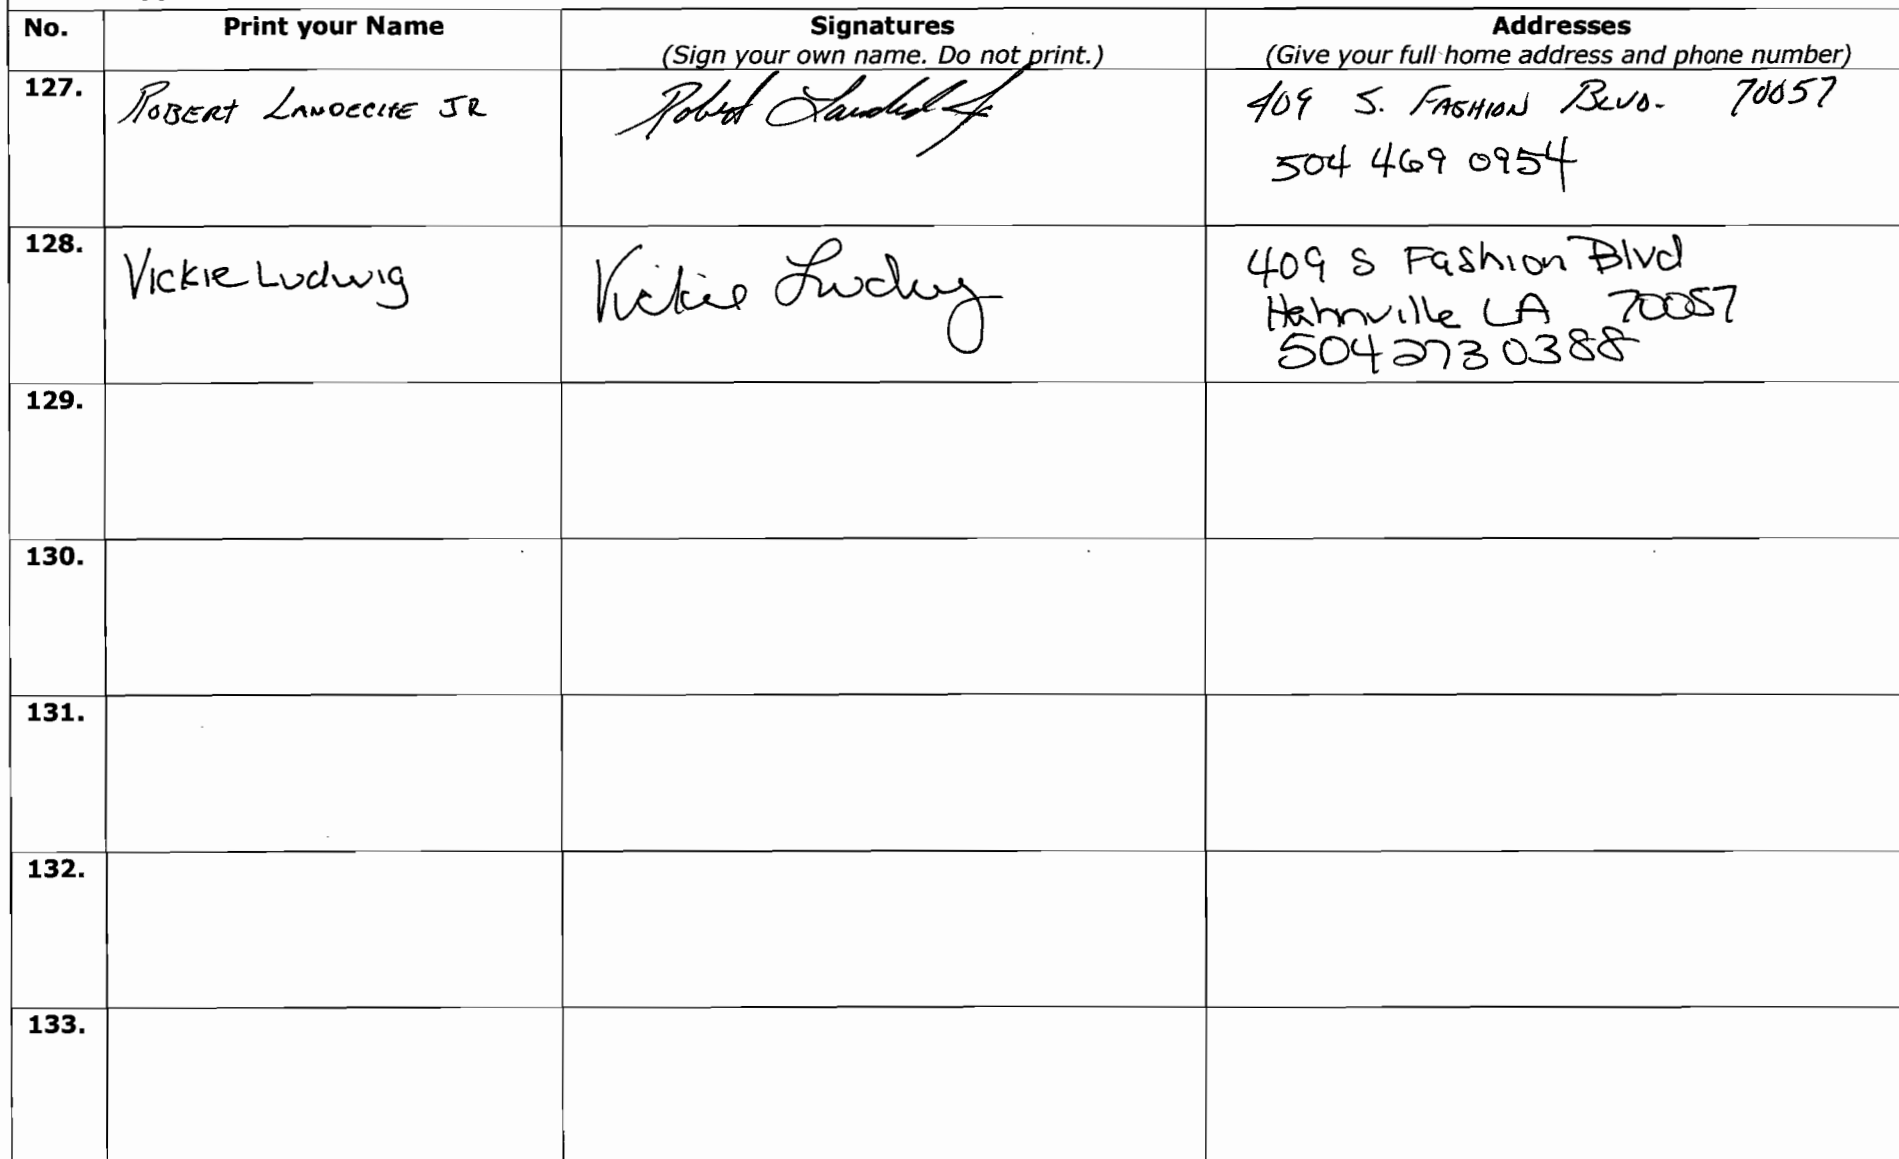 No. Print your Name Signatures Addresses
(Sign your own name. Do not print.) (Give your full home address and phone number)
127. ROBERT JR Robert Jr 409 S. FASHION BLVD. 70057
504 469 0954
128. Vickie Ludwig Vickie Ludwig 409 S Fashion Blvd
Hahnville LA 70057
504 273 0388
129.
130.
131.
132.
133.